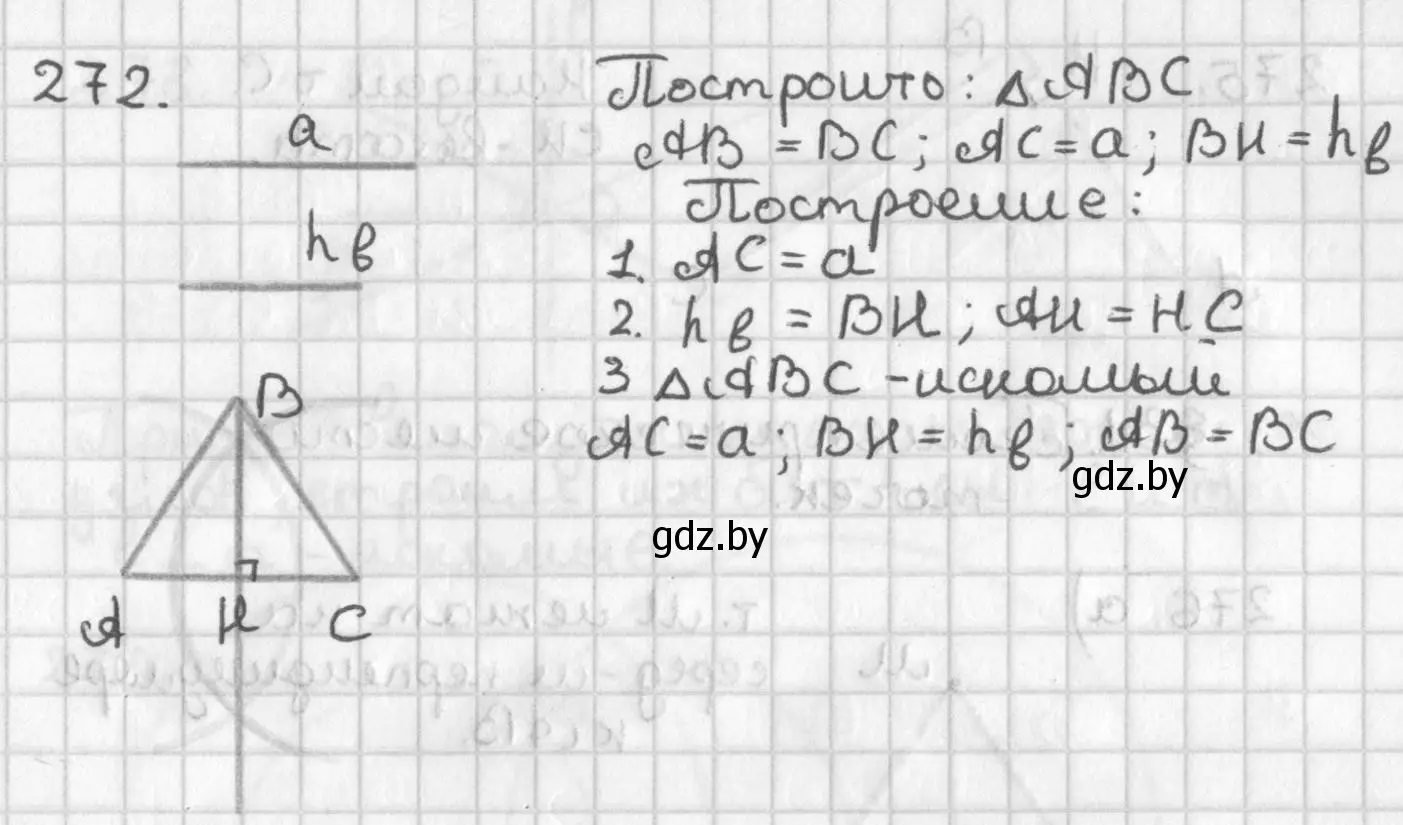 272.
a
hв
B
A H C
Построить: △ABC
AB = BC; AC = a; BH = hв
Построение:
1. AC = a
2. hв = BH; AH = HC
3 △ABC - искомый
AC = a; BH = hв; AB = BC
gdz.by
gdz.by
276. a)
т. M лежит на
M